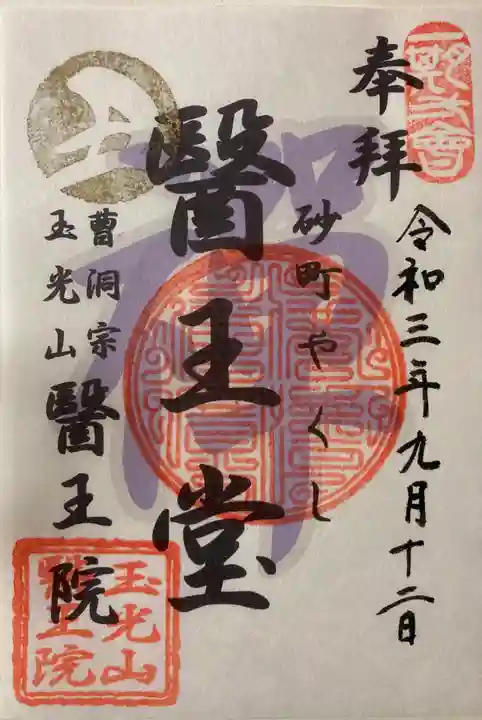 奉拝
令和三年九月十二日
砂町やくし
醫王堂
曹洞宗
玉光山醫王院
玉光山
醫王院